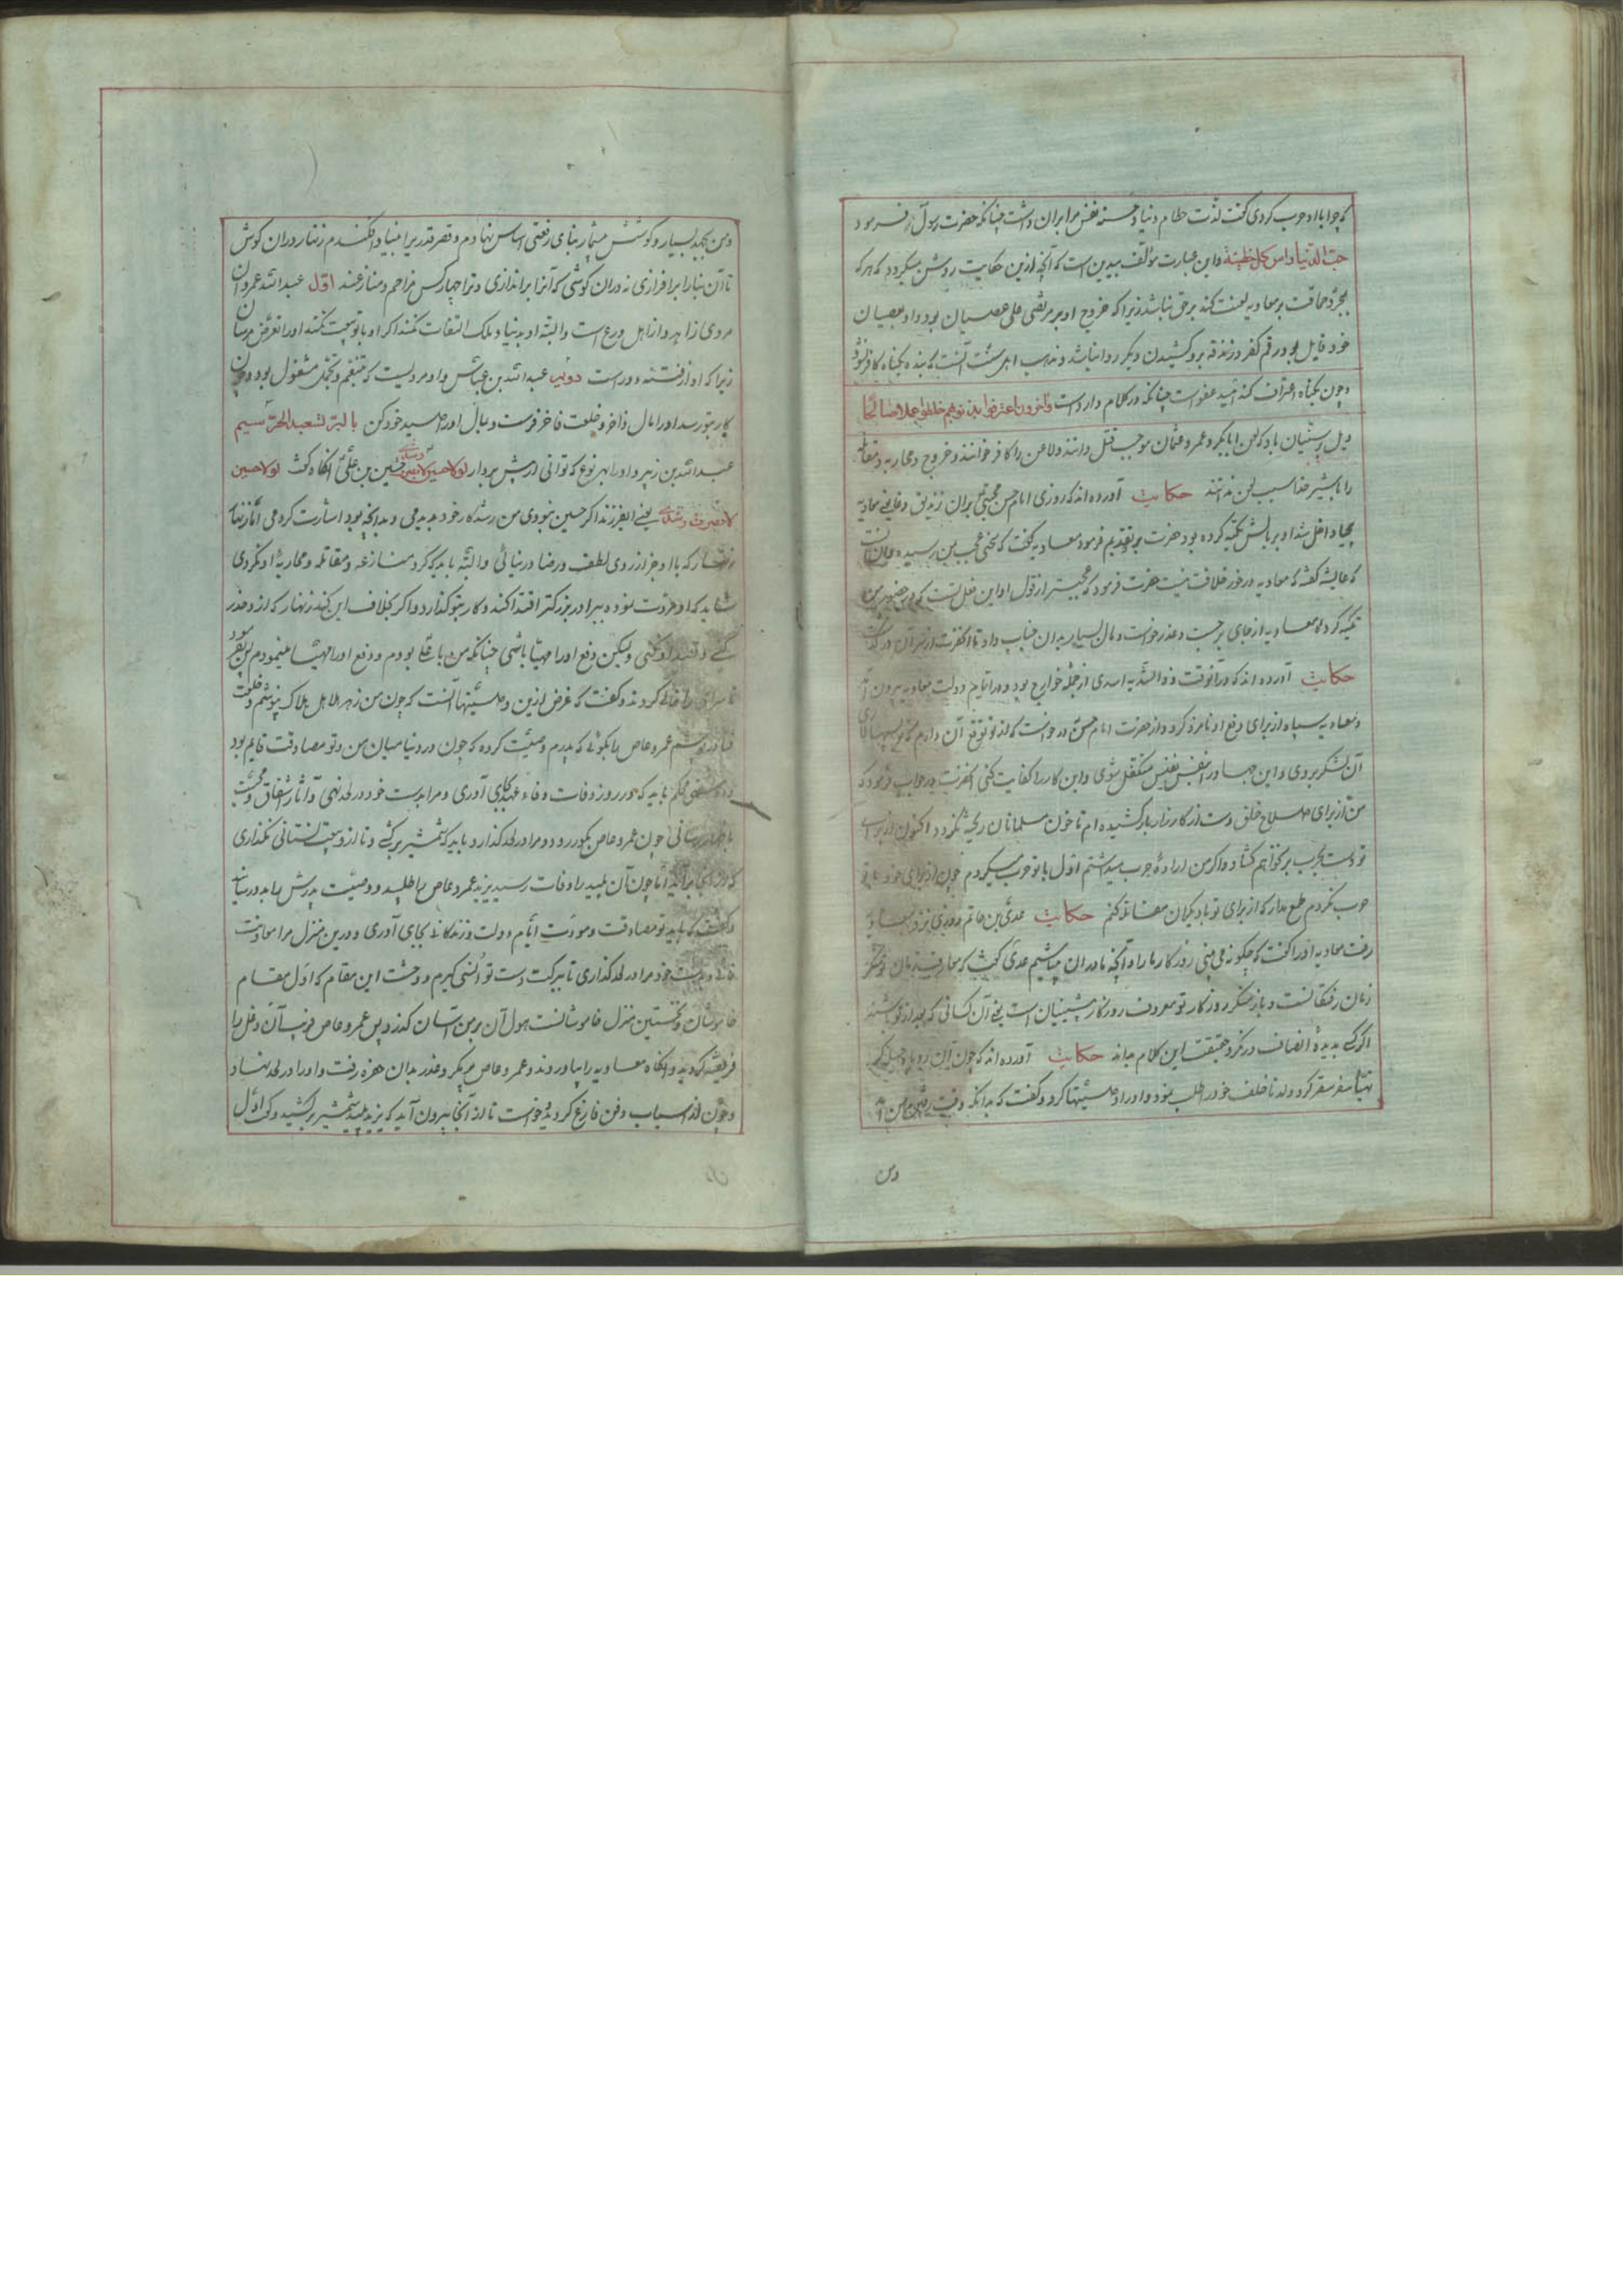 که چرا با او حرب کردی گفت لذت حطام دنیا و خسنه نفس مرا بران داشت چنانکه حضرت رسول فرمود
حبّ الدنیا راس کل خطیئة و این عبارت مؤلف بدین است که آنچه ازین حکایت روشن میگردد که هرکه
بمجرد حماقت بر معاویه لعنت کند بر حق نباشد زیرا که خروج او بر مرتضی علی عصیان بود و او بعصیان
خود قایل بود رقم کفر و زندقه برو کشیدن دیگر روا نباشد و مذهب اهل سنت آنست که بنده بگناه کافر نشود
و چون بگناه اعتراف کند امید عفو است چنانکه در کلام وارد است وآخرون اعترفوا بذنوبهم خلطوا عملا صالحا
که لعن ابابکر و عمر و عثمان موجب قتل دانند و لاعن را کافر خوانند و خروج و محاربه و مقاتله
را با شیر خدا سبب لعن ندانند حکایت آورده اند که روزی امام حسن مجتبی بران زندیق و معاویه
داخل شد او بر بالش تکیه کرده بود حضرت فرمود معاویه گفت که سخنی عجب بمن رسیده
که عایشه گفته که معاویه در خور خلافت نیست حضرت فرمود که عجبتر از قول او این فعل تست که در حضور من
تکیه کرده معاویه از جای برجست و عذر خواست و مال بسیار بدان جناب داد تا آنحضرت از سر آن درگذشت
حکایت آورده اند که در آنوقت اسدی از جمله خوارج بود و در ایام دولت معاویه بیرون آمد
و معاویه سپاه از برای دفع او نامزد کرد و از حضرت امام حسن درخواست که از تو توقع آن دارم که
آن لشکر بروی و این جهاد را بنفس نفیس متکفل شوی و این کار را کفایت کنی آنحضرت در جواب فرمود که
من از برای صلاح خلق دست از کارزار باز کشیده ام تا خون مسلمانان ریخته نگردد اکنون از برای
تو دست بحرب برنخواهم گشاد و اگر من اراده حرب میداشتم اول با تو حرب میکردم چون از برای خود با تو
حرب نکردم طمع مدار که از برای تو با دیگران مقاتله کنم حکایت عدی بن حاتم روزی نزد معاویه
رفت معاویه او را گفت که چگونه می بینی روزگار ما را و آنچه ما در ان میباشیم عدی گفت که
زمان رفتگانست و باز منکر روزگار تو معروف روزگار پیشینیان است یعنی آن کسانی که بعد از تو باشند
اگر کسی بدیده انصاف درنگرد حقیقت این کلام بداند حکایت آورده اند که چون آن روباه حیله گر
تهیا سفر سقر کرد ولد ناخلف خود را طلب نمود و او را وصیتها کرد و گفت که بدانکه وقت رفتن من آمد
و من
و من بجهد بسیار و کوشش بیشمار بنای رفعتی اساس نهادم و قصر قدر بر بنیاد افکندم زنهار دران کوش
تا آن بنا را برافرازی نه دران کوشی که آنرا براندازی و ترا چهار کس مزاحم و منازعند اول عبد الله عمر و ان
مردی زاهد و از اهل ورع است و البته او بدنیا و ملک التفات نکند اگر او با تو بیعت نکند او را تعرض مرسان
زیرا که او از فتنه دور است دویم عبد الله بن عباس و او مردیست که بتنعم و تجمل مشغول بود و چون
کار بتو رسد او را مال وافر و خلعت فاخر فرست و بمال او را صید خود کن بالبر تستعبد الحر سیم
عبد الله بن زبیر و او را بهر نوع که توانی از پیش بردار لو لا حسین لانصرفت و رشدی حسین بن علی آنگاه گفت لو لا حسین
لانصرفت و رشدی یعنی ای فرزند اگر حسین نبودی من رشد کار خود بدیدمی و بدانچه بود اشارت کردمی اما زنهار
زنهار که با او جز از روی لطف و رضا در نیائی و البته باید که گرد منازعه و مقاتله و محاربه او نگردی
شاید که او عزلت نموده ببرادر بزرگتر اقتدا کند و کار بتو گذارد و اگر بخلاف این کند زنهار که از و حذر
کنی و قصد او نکنی ولیکن دفع او را مهیا باشی چنانکه من با علی بودم و دفع او را مهیا مینمودم پس بفرمود
تا سرای را خالی کردند و گفت که غرض ازین وصیتها آنست که چون من زهر هلاهل هلاک بنوشم و خلعت
فنا در پوشم عمرو عاص را بگوئی که پدرم وصیت کرده که چون در دنیا میان من و تو مصادقت قایم بود
و دوستی محکم باید که در روز وفات وفاء عهد بجای آوری و مرا بدست خود در لحد نهی و آثار اشفاق و محبت
باظهار رسانی چون عمرو عاص بگور رود و مرا در لحد گذارد باید که شمشیر برکشی و تا ازو بیعت نستانی نگذاری
که از گور برآید اما چون آن پلید را وفات رسید یزید عمرو عاص را طلبید و وصیت پدرش بدو رسانید
و گفت که باید تو مصادقت و مودت ایام دولت و زندگانی بجای آوری و درین منزل مرا معاونت
نمائی و بدست خود مرا در لحد گذاری تا ببرکت دست تو انسی گیرم و وحشت این مقام که اول مقام
خاموشان و نخستین منزل خاموشانست هول آن بر من آسان گذرد پس عمرو عاص فریب آن دغل را
فریفته گردید و آنگاه معاویه را بیاوردند و عمرو عاص بمکر و غدر بدان حفره رفت و او را در لحد نهاد و
و چون از اسباب دفن فارغ گردید و خواست تا از آنجا بیرون آید که یزید پلید شمشیر برکشید و گفت اول